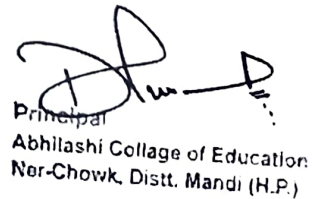 Principal
Abhilashi Collage of Education
Ner-Chowk, Distt. Mandi (H.P.)